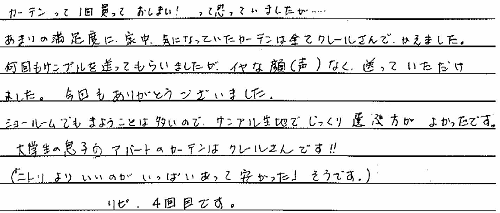 カーテンって1回買っておしまい! って思っていましたが……
あまりの満足度に、家中、気になっていたカーテンは全てクレールさんで、かえました。
何回もサンプルを送ってもらいましたが、イヤな顔(声)なく、送っていただけ
ました。 今回もありがとうございました。
ショールームでもまようことは多いので、サンプル生地でじっくり選ぶ方が よかったです。
大学生の息子のアパートのカーテンはクレールさんです!!
(「ニトリよりいいのがいっぱいあって安かった」そうです。)
リピ、4回目です。